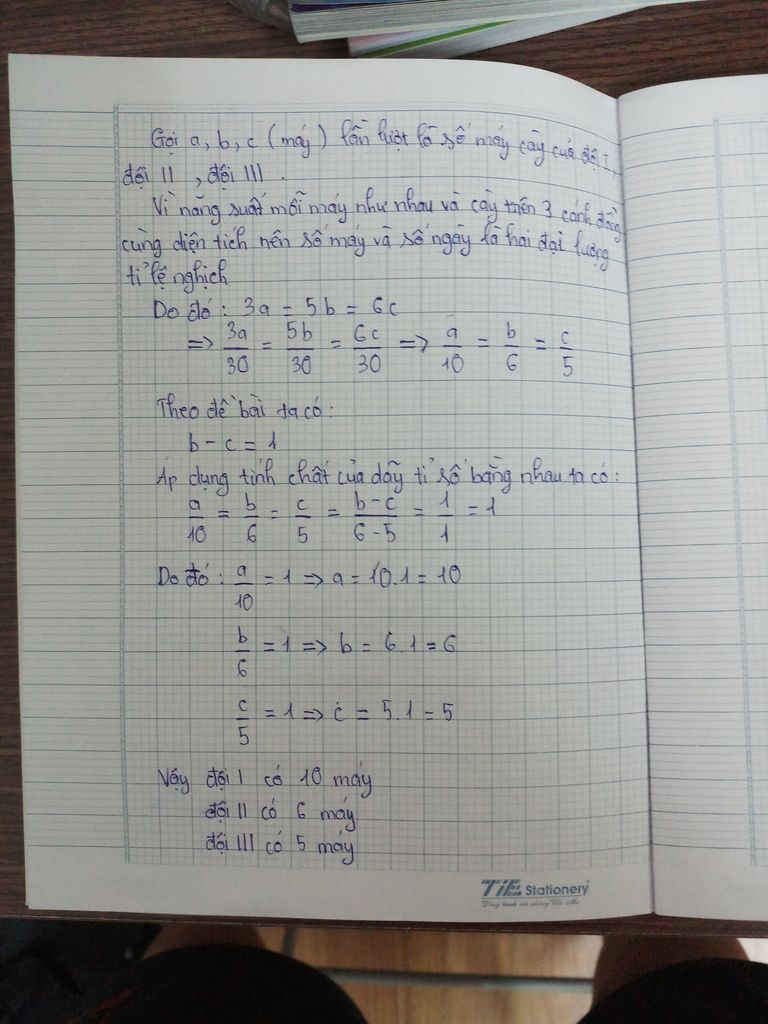 Gọi a, b, c (máy) lần lượt là số máy cày của đội I,
đội II , đội III .
Vì năng suất mỗi máy như nhau và cày trên 3 cánh đồng
cùng diện tích nên số máy và số ngày là hai đại lượng
tỉ lệ nghịch
Do đó : 3a = 5b = 6c
=> 3a/30 = 5b/30 = 6c/30 => a/10 = b/6 = c/5
Theo đề bài ta có :
b - c = 1
Áp dụng tính chất của dãy tỉ số bằng nhau ta có :
a/10 = b/6 = c/5 = b-c/6-5 = 1/1 = 1
Do đó : a/10 = 1 => a = 10.1 = 10
b/6 = 1 => b = 6.1 = 6
c/5 = 1 => c = 5.1 = 5
Vậy đội I có 10 máy
đội II có 6 máy
đội III có 5 máy
TiE Stationery